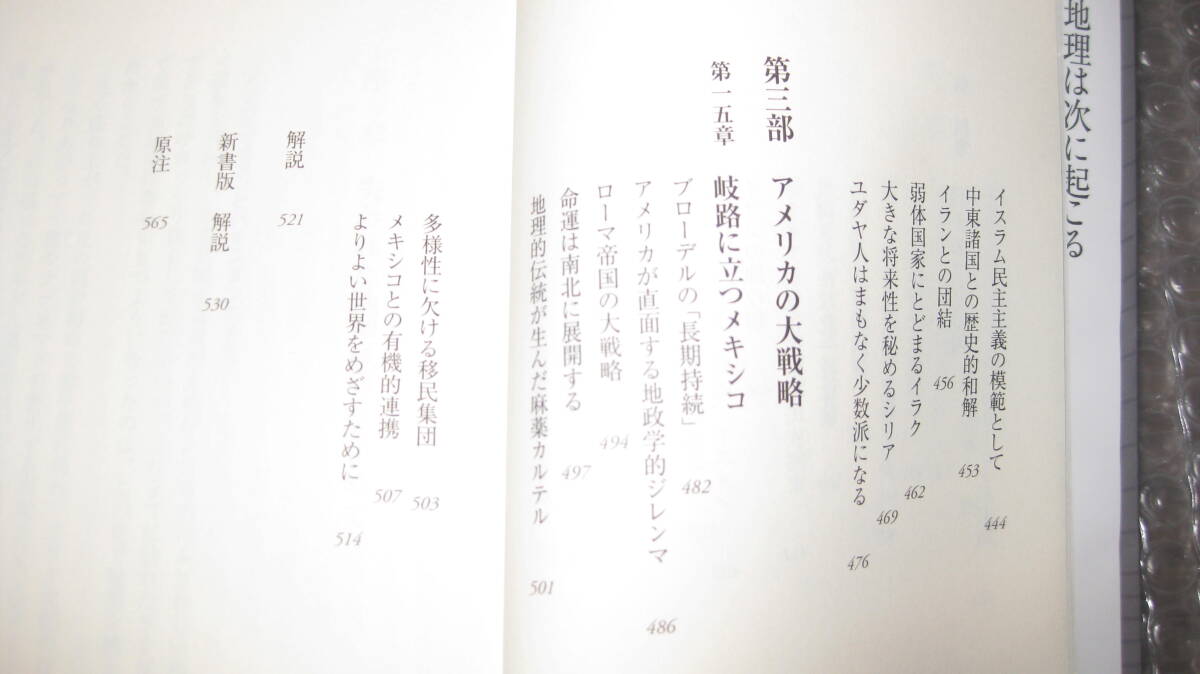 地理は次に起こる
イスラム民主主義の模範として 444
中東諸国との歴史的和解 453
イランとの団結 456
弱体国家にとどまるイラク 462
大きな将来性を秘めるシリア 469
ユダヤ人はまもなく少数派になる 476
第三部 アメリカの大戦略
第一五章 岐路に立つメキシコ
ブローデルの「長期持続」 482
アメリカが直面する地政学的ジレンマ 486
ローマ帝国の大戦略 494
命運は南北に展開する 497
地理的伝統が生んだ麻薬カルテル 501
多様性に欠ける移民集団 503
メキシコとの有機的連携 507
よりよい世界をめざすために 514
解説 521
新書版 解説 530
原注 565